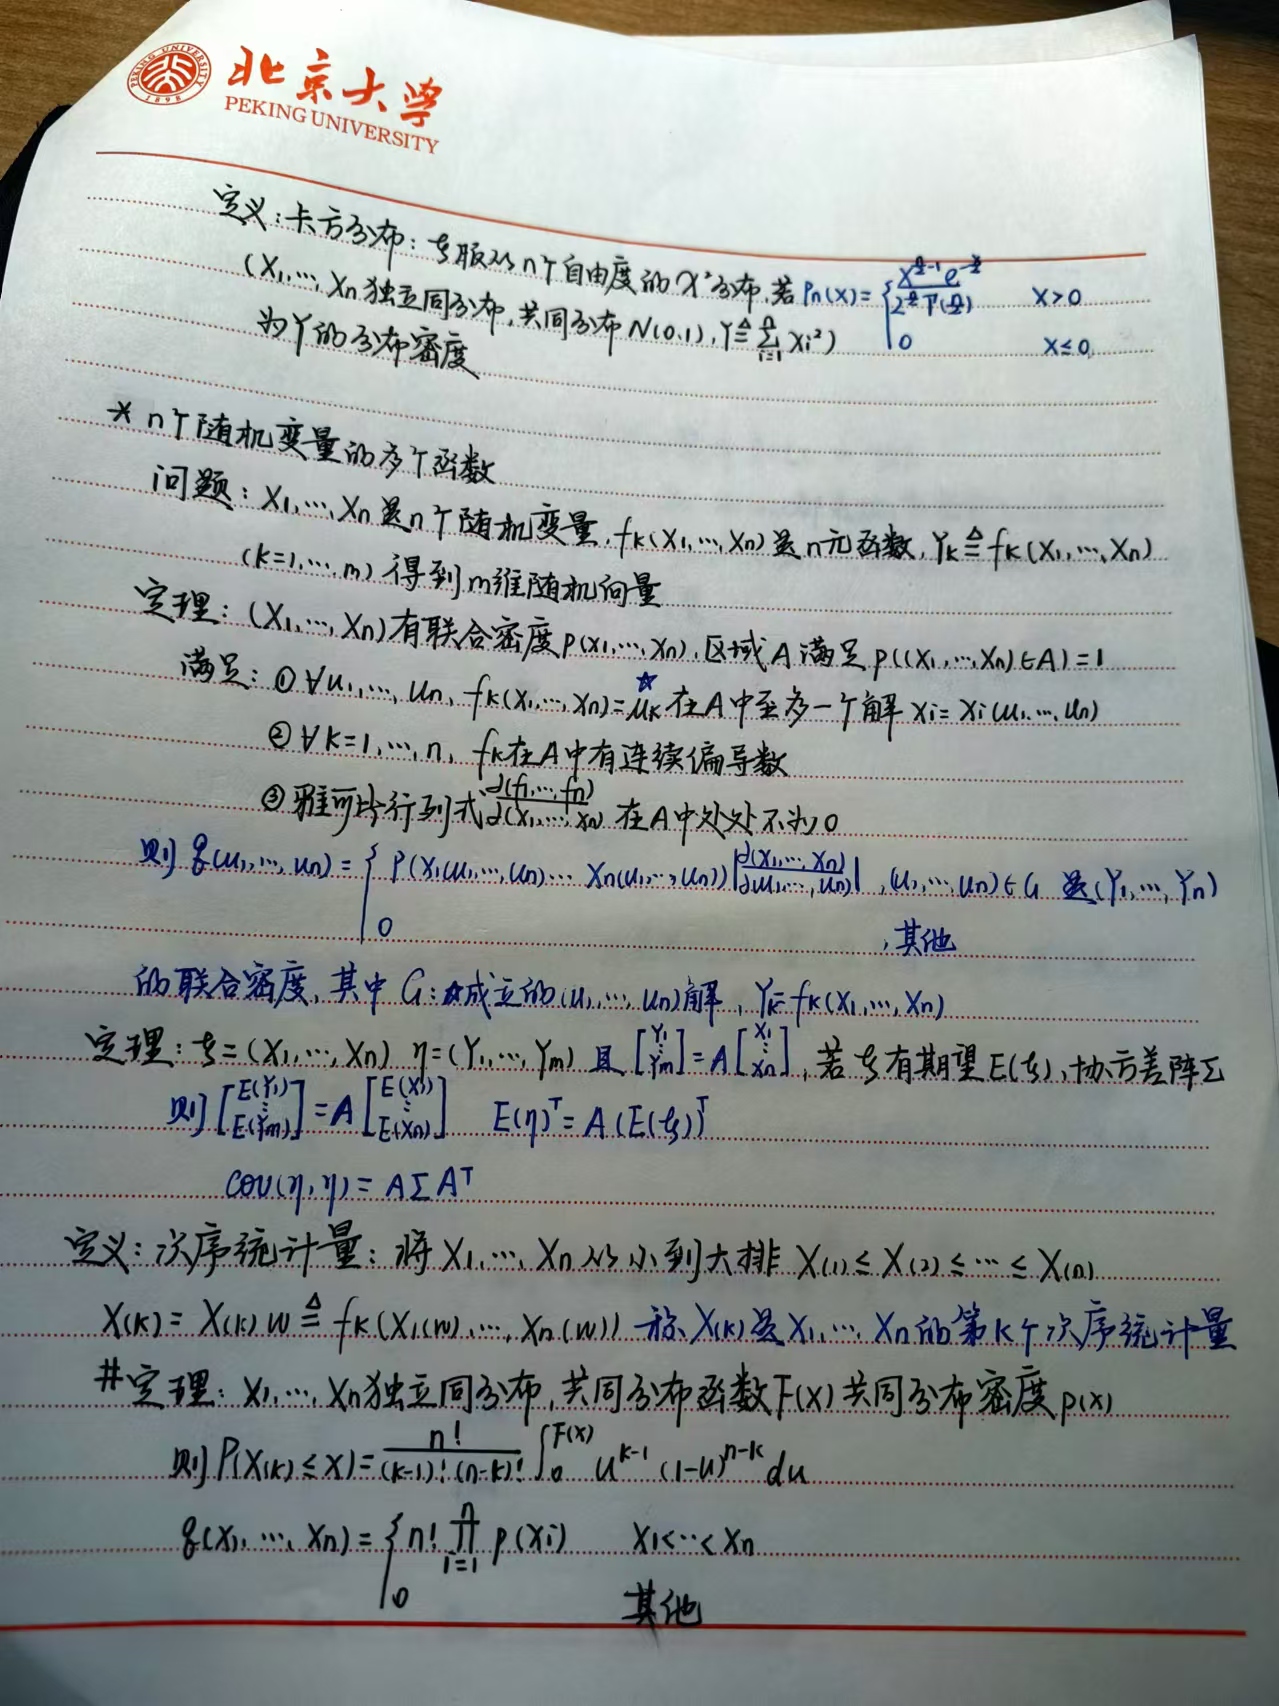 北京大学
PEKING UNIVERSITY
PEKING UNIVERSITY
1898
定义:卡方分布:ξ服从n个自由度的χ²分布,若 Pn(x)= { x^(n/2-1) e^(-x/2) / 2^(n/2) Γ(n/2) x>0
0 x≤0
(X1,…,Xn独立同分布,共同分布N(0,1),Y≜∑_{i=1}^{n} Xi²)
为Y的分布密度
* n个随机变量的多个函数
问题:X1,…,Xn是n个随机变量,fk(X1,…,Xn)是n元函数,Yk≜fk(X1,…,Xn)
(k=1,…,m)得到m维随机向量
定理:(X1,…,Xn)有联合密度p(x1,…,xn),区域A满足P((X1,…,Xn)∈A)=1
☆
满足:①∀u1,…,un, fk(X1,…,Xn)=uk在A中至多一个解xi=xi(u1,…,un)
②∀k=1,…,n, fk在A中有连续偏导数
③雅可比行列式 ∂(f1,…,fn)/∂(x1,…,xn) 在A中处处不为0
则 q(u1,…,un)= { P(x1(u1,…,un)…xn(u1,…,un)) |∂(x1,…,xn)/∂(u1,…,un)| ,(u1,…,un)∈G 是(Y1,…,Yn)
0 ,其他
的联合密度,其中G:☆成立的(u1,…,un)解,Yk=fk(X1,…,Xn)
定理:ξ=(X1,…,Xn) η=(Y1,…,Ym)且 [Y1 ⋮ Ym]=A[X1 ⋮ Xn],若ξ有期望E(ξ),协方差阵Σ
则 [E(Y1) ⋮ E(Ym)]=A[E(X1) ⋮ E(Xn)] E(η)^T=A(E(ξ))^T
cov(η,η)=AΣA^T
定义:次序统计量:将X1,…,Xn从小到大排 X(1)≤X(2)≤…≤X(n)
X(k)=X(k)w≜fk(X1(w),…,Xn(w)) 称X(k)是X1,…,Xn的第k个次序统计量
#定理:X1,…,Xn独立同分布,共同分布函数F(x)共同分布密度p(x)
则P(X(k)≤x)= n!/((k-1)!(n-k)!) ∫_0^{F(x)} u^{k-1}(1-u)^{n-k}du
q(x1,…,xn)= { n! ∏_{i=1}^{n} p(xi) x1<…<xn
0 其他